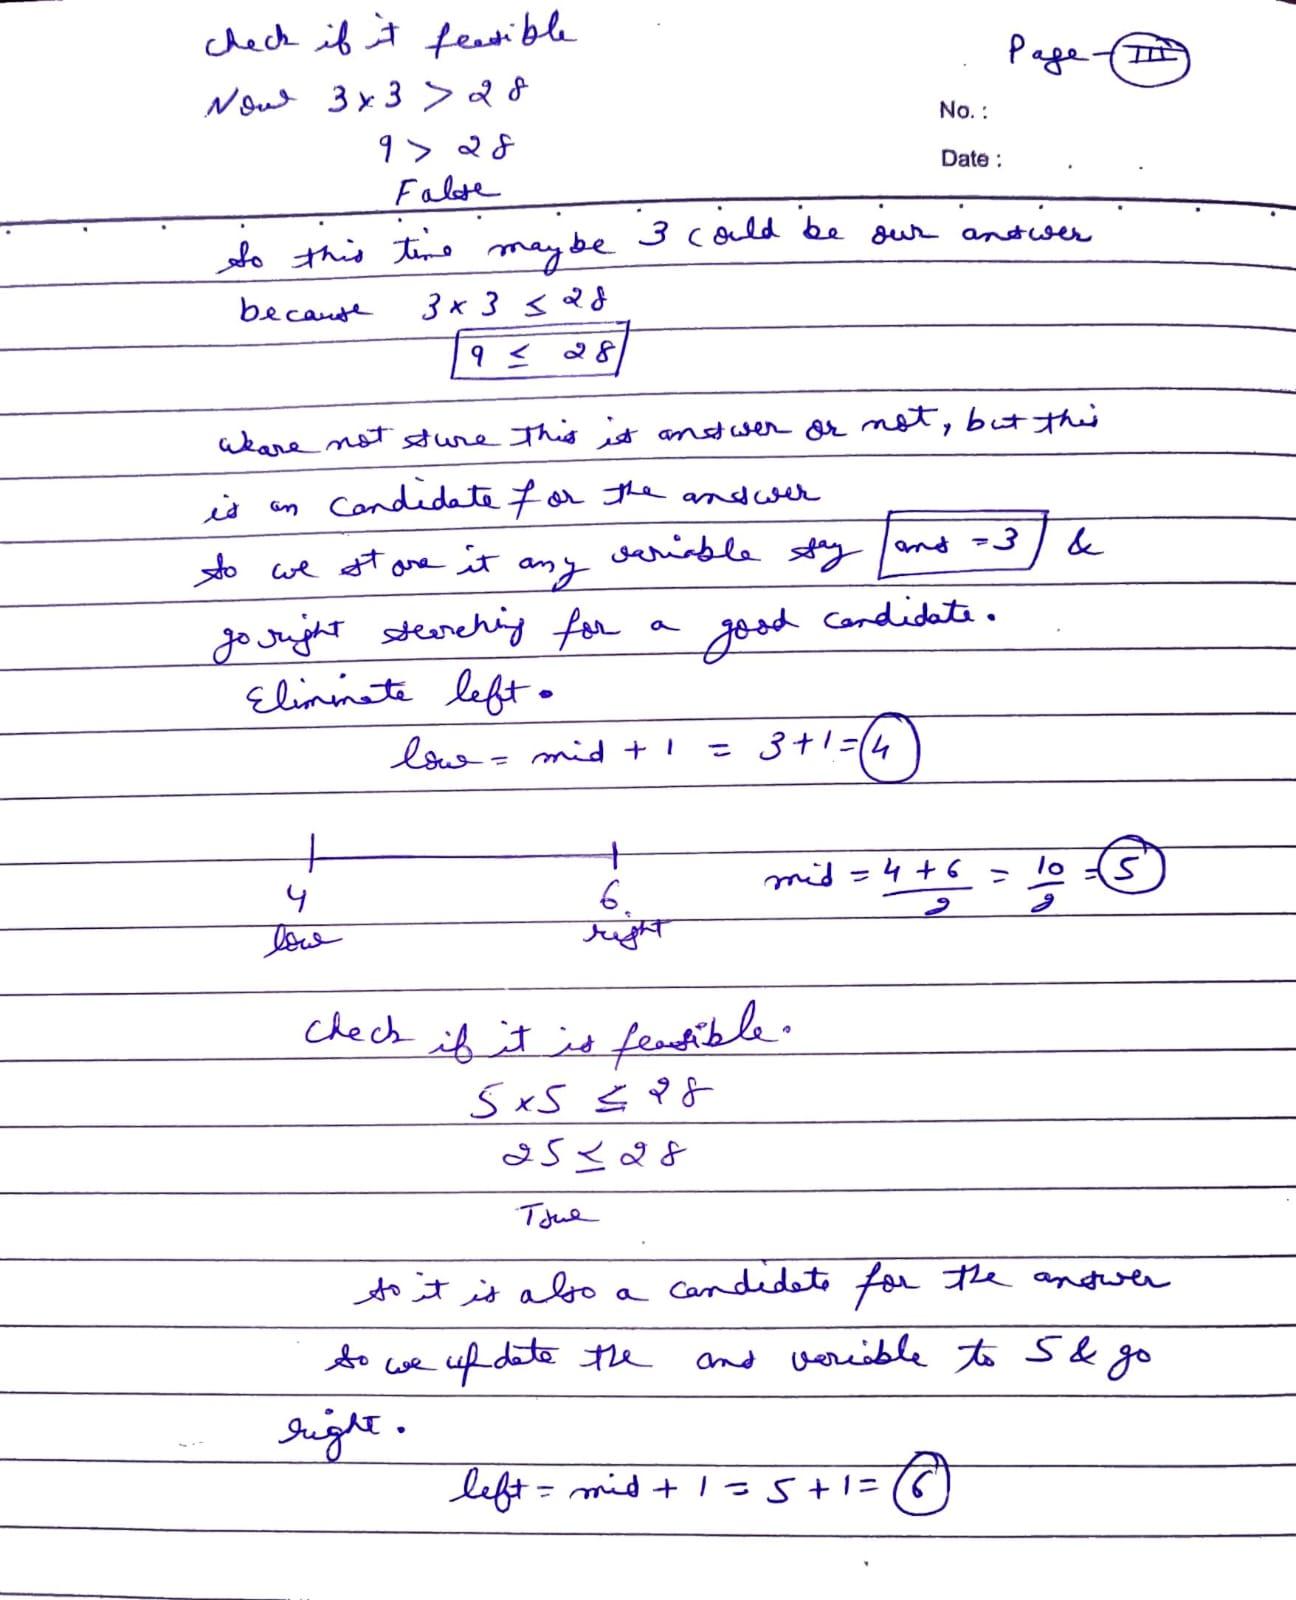 check if it feasible
Page - III
Now 3x3 > 28
No. :
9 > 28
Date :
False
So this time maybe 3 could be our answer
because 3 x 3 ≤ 28
9 ≤ 28
We are not sure this is answer or not, but this
is an candidate for the answer
So we store it any variable say ans = 3 &
go right searching for a good candidate.
Eliminate left.
low = mid + 1 = 3+1 = 4
4 6 mid = 4 + 6 / 2 = 10 / 2 = 5
low right
Check if it is feasible.
5 x 5 ≤ 28
25 ≤ 28
True
So it is also a candidate for the answer
So we update the ans variable to 5 & go
right.
left = mid + 1 = 5 + 1 = 6